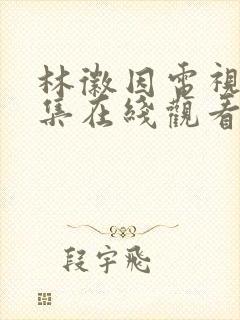 林徽因電視
集在綫觀看
段宇飛